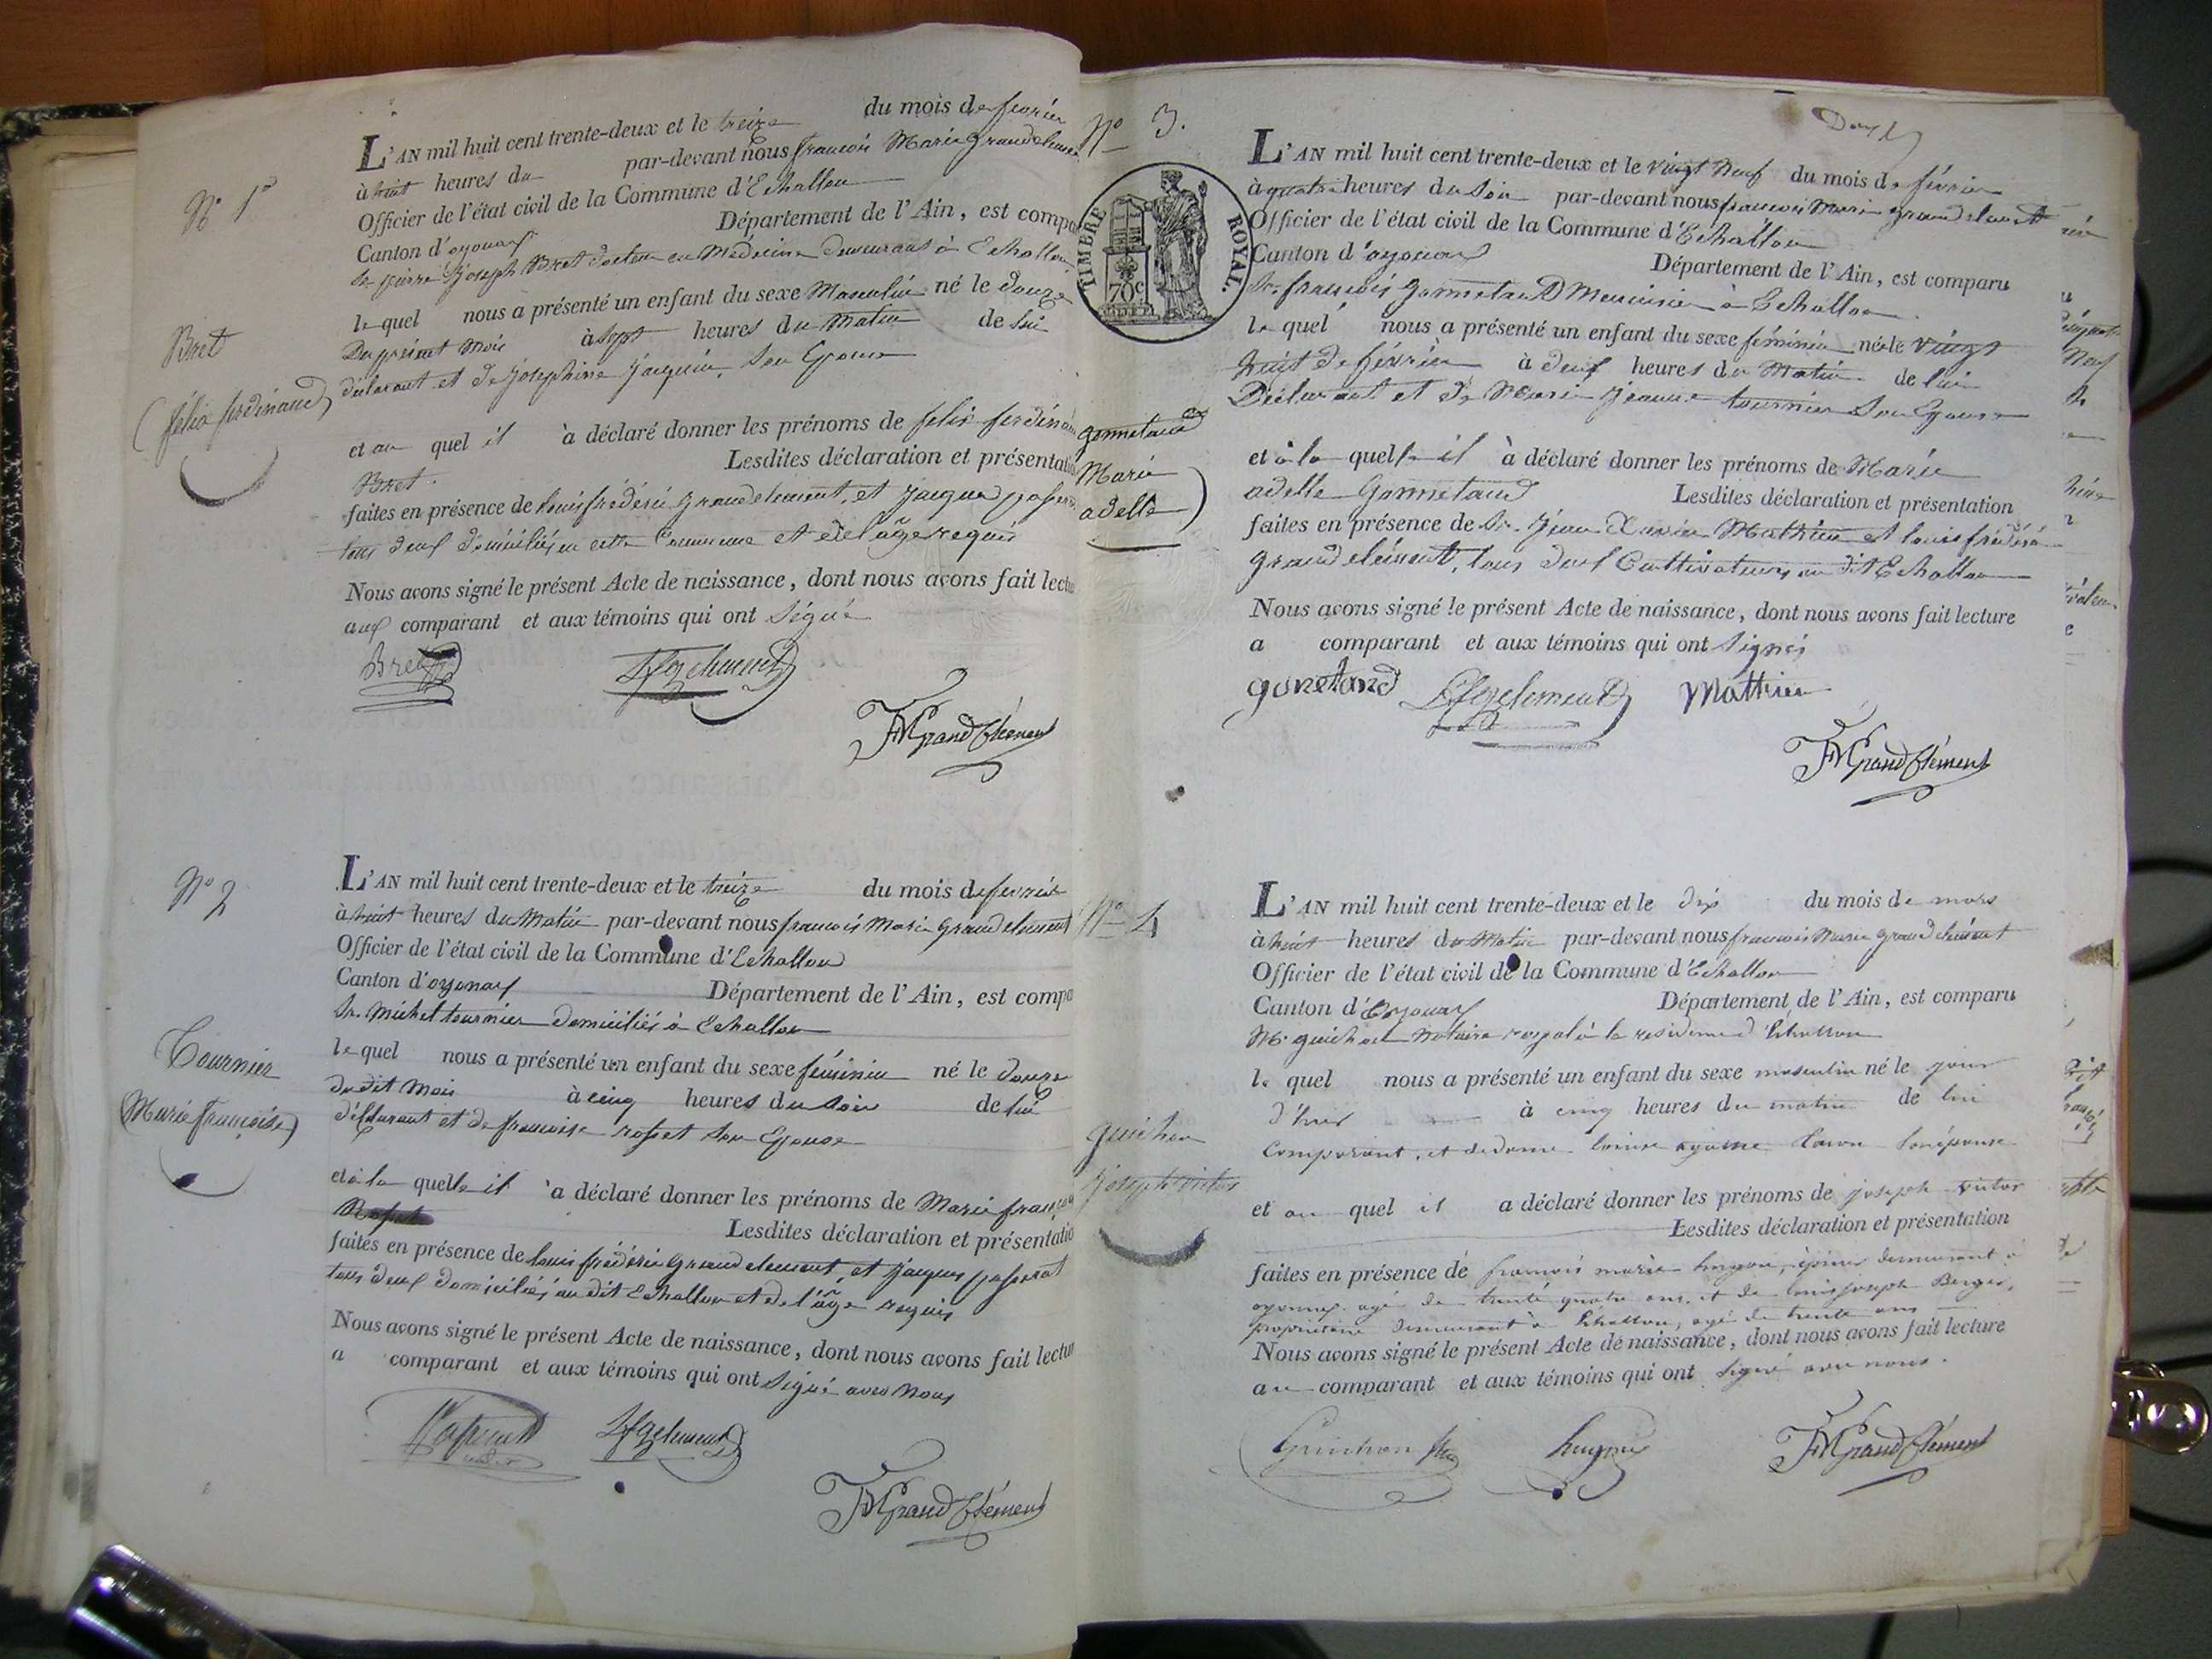 N° 1er
Bret
(félix ferdinand)
L'AN mil huit cent trente-deux et le treize du mois de fevrier
à huit heures du par-devant nous francois Marie grandclement
Officier de l'état civil de la Commune d'Echallon
Canton d'oyonax Département de l'Ain, est compa
Sr pierre Joseph Bret docteur en Médecine demeurant à Echallon
lequel nous a présenté un enfant du sexe Masculin né le douze
Du présent Mois à sept heures du Matin de lui
déclarant et de Joséphine Jacquin, son Epouse
et au quel il a déclaré donner les prénoms de felix ferdinan
Bret. Lesdites déclaration et présentatio
faites en présence de louis frédéric grandclement, et jacques passera
tous deux domiciliés en cette Commune et de l'âge requis
Nous avons signé le présent Acte de naissance, dont nous avons fait lectu
aux comparant et aux témoins qui ont Signé
Bret
Lfgclement
FMGrandClément
N° 2
Tournier
(Marie françoise)
L'AN mil huit cent trente-deux et le treize du mois de fevrier
à huit heures du Matin par-devant nous francois Marie grandclement
Officier de l'état civil de la Commune d'Echallon
Canton d'oyonax Département de l'Ain, est compa
Sr. Michel tournier domiciliés à Echallon
lequel nous a présenté un enfant du sexe féminin né le douze
du dit Mois à cinq heures du soir de lui
déclarant et de francoise rosset son Epouse
et à la quelle il a déclaré donner les prénoms de Marie françoi
Rosset Lesdites déclaration et présentatio
faites en présence de louis frédéric grandclement, et jacques passerat
tous deux domiciliés au dit Echallon et de l'âge requis
Nous avons signé le présent Acte de naissance, dont nous avons fait lectu
a comparant et aux témoins qui ont Signé avec nous
Passerat
Lfgclement
FMGrandClément
N° 3.
TIMBRE ROYAL.
70c
gonnetand
Marie
adelle)
L'AN mil huit cent trente-deux et le vingt Neuf du mois de février
à quatre heures du Soir par-devant nous francois Marie grandclement
Officier de l'état civil de la Commune d'Echallon
Canton d'oyonax Département de l'Ain, est comparu
Sr. françois gonnetand Menuisier à Echallon
lequel nous a présenté un enfant du sexe féminin née le vingt
huit de février à deux heures du Matin de lui
Déclarant et de Marie Jeanne tournier son Epouse
et à la quelle il a déclaré donner les prénoms de Marie
adelle Gonnetand Lesdites déclaration et présentation
faites en présence de Sr. Jean Xavier Mathieu et louis frédéric
grandclément, tous deux Cultivateurs au dit Echallon
Nous avons signé le présent Acte de naissance, dont nous avons fait lecture
a comparant et aux témoins qui ont Signés
gonetand Lfgclement Mathieu
FMGrandClément
N° 4
guichon
joseph victor
L'AN mil huit cent trente-deux et le dix du mois de mars
à huit heures du Matin par-devant nous francois Marie grandclément
Officier de l'état civil de la Commune d'Echallon
Canton d'Oyonax Département de l'Ain, est comparu
Mr guichon Notaire royal à la residence d'Echallon
lequel nous a présenté un enfant du sexe masculin né le jour
d'hier à cinq heures du matin de lui
comparant, et de dame louise son épouse
et au quel il a déclaré donner les prénoms de joseph victor
Lesdites déclaration et présentation
faites en présence de françois marie demeurant à
oyonnax agé de trente quatre ans, et de louis joseph Berger,
propriétaire demeurant à Echallon, agé de trente ans
Nous avons signé le présent Acte de naissance, dont nous avons fait lecture
au comparant et aux témoins qui ont signé avec nous.
Guichon
FMGrandClément